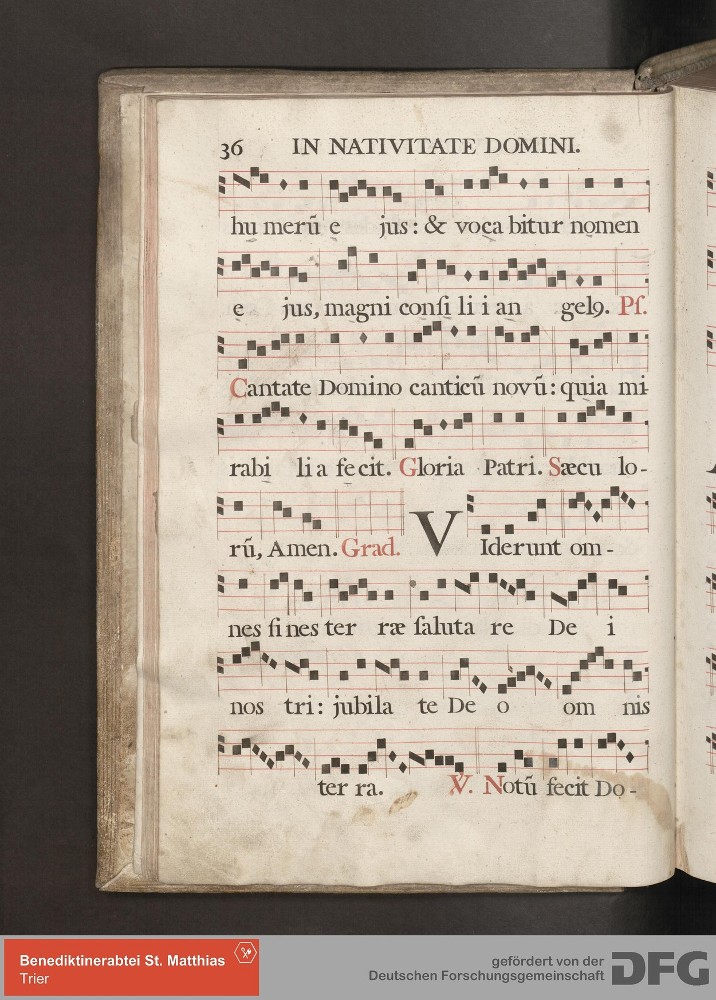 36 IN NATIVITATE DOMINI.
hu merū e jus: & voca bitur nomen
e jus, magni consi li i an gelꝯ. Ps.
Cantate Domino canticū novū: quia mi-
rabi li a fe cit. Gloria Patri. Sæcu lo-
rū, Amen. Grad. V Iderunt om-
nes fi nes ter ræ saluta re De i
nos tri: jubila te De o om nis
ter ra. V. Notū fecit Do-
Benediktinerabtei St. Matthias
Trier
gefördert von der
Deutschen Forschungsgemeinschaft DFG